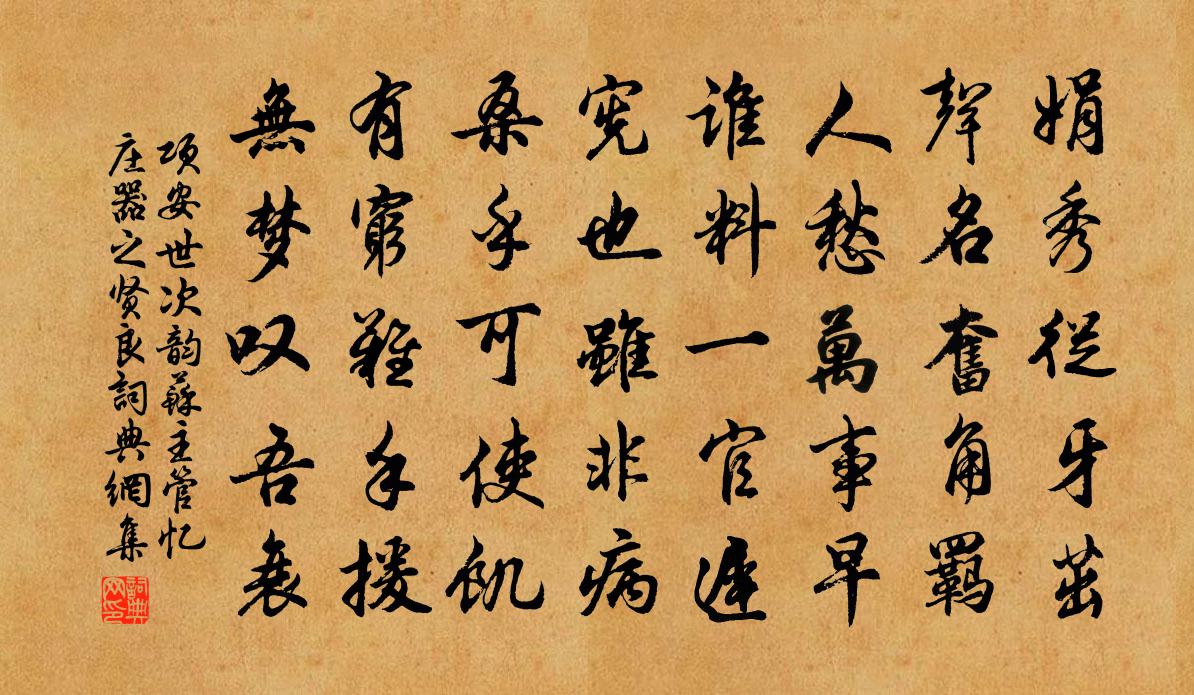 娟秀從牙茁
聲名奮角羈
人愁萬事早
谁料一官遲
宪也雖非病
桑乎可使飢
有窮難手援
無梦叹吾衰
项安世次韵蘇主管忆
庄器之贤良詞典網集
詞典网印